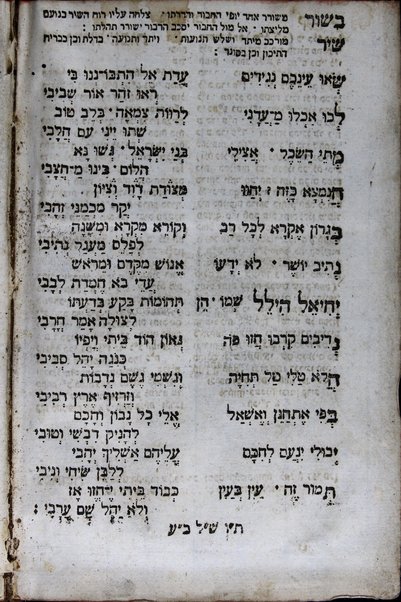 משורר אחד יופי החבור והדרתו׳ צלחה עליו רוח השיר בנועם
בשור מליצתו׳ אל מול החבור יסכב הדבור ישורר תהלתו׃
שיר מורכב מיתד ושלש תנועות׳ ויתד ותנועה׳ בדלת וכן בבריח
התיכון וכן בסוגר׃
שאו עינכם נגידים עדת אל התבוננו בי
ראו זהר אור שביבי
לכו אכלו מעדני לרוות צמאה׳ בלב טוב
שתו ייני עם חלבי
מתי השכל׳ אצילי בני ישראל׳ גשו נא
הלום׳ בינו מחצבי
הנמצא כזה׳ יחזו מצורת דוד וציון
יקר מכמני זהבי
בגרון אקרא לכל רב וקורא מקרא ומשנה
לפלס מעגל נתיבי
נתיב יושר׳ לא ידעו אנוש מקדם ומראש
עדי בא חמדת לבבי
יחיאל הילל שמו׳ הן תהומות בקע בדעתו
לצולה אמר חרבי
נדיבים קרבו חזו פה גאון הוד ביתי ויפיו
כנגה יהל סביבי
הלא טלי טל תחיה וגשמי גשם נדבות
וזרזיף ארץ רביבי
בפי אתחנן ואשאל אלי כל נבון וחכם
להניק דבשי וטובי
יבולי ינעם לחכם עליהם אשליך יהבי
ללבן שיחי וניבי
תמור זה׳ עין בעין כבוד ביתי יחזו אז
ולא יהל שם ערבי׃